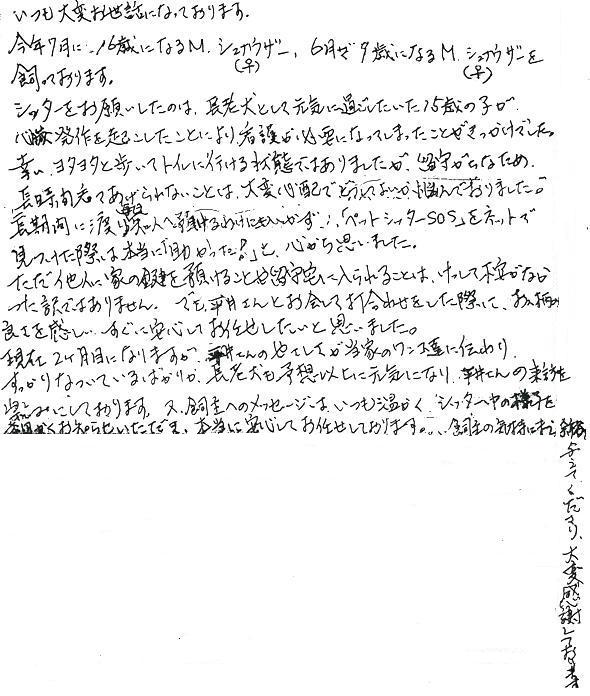 いつも大変お世話になっております。
今年7月に、16歳になるM.シュナウザー、6月で9歳になるM.シュナウザーを
(♀) (♀)
飼っております。
シッターをお願いしたのは、長老犬として元気に過ごしていた15歳の子が
心臓発作を起こしたことにより看護が必要になってしまったことがきっかけでした。
幸い、ヨタヨタと歩いてトイレに行ける状態ではありましたが、留守がちなため、
長時間看てあげられないことは、大変心配で悩んでおりました。
長期間に渡り知人へ預けるわけにもいかず、「ペットシッターSOS」をネットで
見つけた際は本当に「助かった!」と、心から思いました。
ただ他人に家の鍵を預けることや留守宅に入られることは、けして不安がなか
った訳ではありません。でも、平井さんとお会いして打合わせをした際に、お人柄の
良さを感じ、すぐに安心してお任せしたいと思いました。
現在2ヶ月目になりますが、平井さんのやさしさが当家のワン達に伝わり、
すっかりなついているばかりか、長老犬も予想以上に元気になり、平井さんの来訪を
楽しみにしております。又、飼主へのメッセージは、いつも温かく、シッター中の様子を
お知らせいただき、本当に安心してお任せしております。飼主の気持にまで
与えてくださり、大変感謝しております